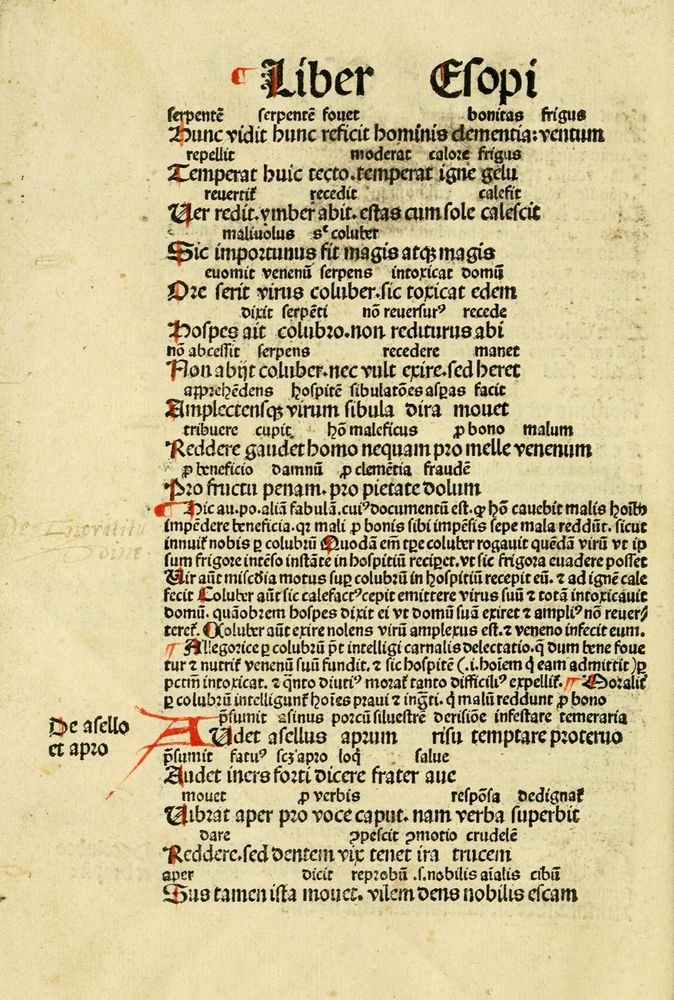 ¶ Liber Esopi
serpentē serpentē fouet bonitas frigus
Hunc vidit hunc reficit hominis clementia: ventum
repellit moderat calore frigus
Temperat huic tecto. temperat igne gelu
reuertit᷑ recedit calefit
Uer redit. ymber abit. estas cum sole calescit
maliuolus sᶜ coluber
Sic importunus fit magis atqꝫ magis
euomit venenū serpens intoxicat domū
Ore serit virus coluber. sic toxicat edem
dixit serpēti nō reuersurꝰ recede
Hospes ait colubro. non rediturus abi
nō abcessit serpens recedere manet
Non abijt coluber. nec vult exire. sed heret
apprehēdens hospitē sibulatōes aspas facit
Amplectensqꝫ virum sibula dira mouet
tribuere cupit hō maleficus ꝓ bono malum
Reddere gaudet homo nequam pro melle venenum
ꝓ beneficio damnū ꝓ clemētia fraudē
Pro fructu penam. pro pietate dolum
¶ Hic au. po. aliā fabulā. cuiꝰ documentū est. ꝙ hō cauebit malis hoībꝰ
impēdere beneficia. qꝛ mali ꝓ bonis sibi impēsis sepe mala reddūt. sicut
innuit᷑ nobis ꝑ colubrū Quodā em̄ tꝑe coluber rogauit quēdā virū vt ip
sum frigore intēso instāte in hospitiū recipet. vt sic frigora euadere posset
Uir aūt miscd̓ia motus suꝑ colubrū in hospitiū recepit eū. ⁊ ad ignē cale
fecit Coluber aūt sic calefactꝰ cepit emittere virus suū ⁊ totā intoxicauit
domū. quāobrem hospes dixit ei vt domū suā exiret ⁊ ampliꝰ nō reuer⸗
teret᷑. Coluber aūt exire nolens virū amplexus est. ⁊ veneno infecit eum.
¶ Allegorice ꝑ colubrū pt̄ intelligi carnalis delectatio. q̄ dum bene foue
tur ⁊ nutrit᷑ venenū suū fundit. ⁊ sic hospitē (.i. hoīem q̇ eam admittit) ꝑ
pctm̄ intoxicat. ⁊ qn̄to diutiꝰ morat᷑ tanto difficiliꝰ expellit᷑. ¶ Moralit᷑
ꝑ colubrū intelligunt᷑ hoīes praui ⁊ ing̃ti. q̇ malū reddunt ꝓ bono
p̄sumit asinus porcū siluestrē derisiōne infestare temeraria
De asello
et apro
Audet asellus aprum risu temptare proteruo
p̄sumit fatuꝰ scꝫ apro loq̇ salue
Audet iners forti dicere frater aue
mouet ꝓ verbis respōsa dedignat᷑
Uibrat aper pro voce caput. nam verba superbit
dare ꝯpescit ꝯmotio crudelē
Reddere. sed dentem vix tenet ira trucem
aper dicit reprobū .s. nobilis aīalis cibū
Sus tamen ista mouet. vilem dens nobilis escam